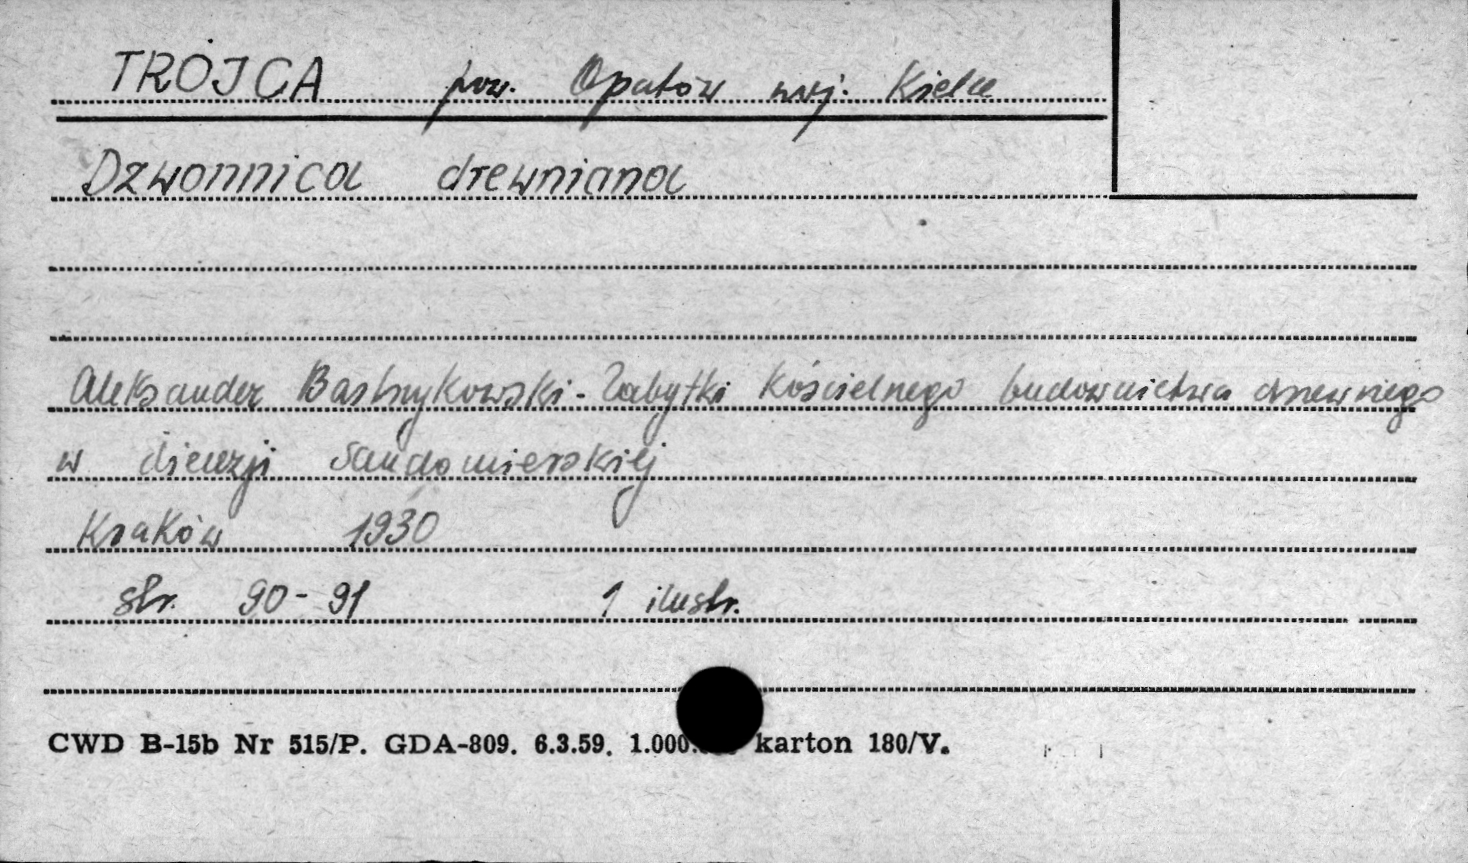 TRÓJCA pow. Opatów woj. Kielce
Dzwonnica drewniana
Aleksander Bastrzykowski - Zabytki Kościelnego budownictwa drzewnego
w diecezji Sandomierskiej
Kraków 1930
str. 90-91 1 ilustr.
CWD B-15b Nr 515/P. GDA-809. 6.3.59. 1.000. karton 180/V.